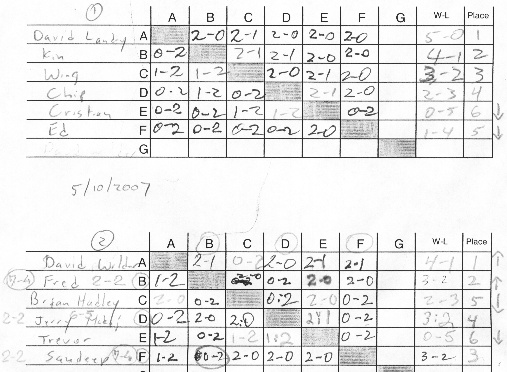 1 A B C D E F G W-L Place
David Landy A 2-0 2-1 2-0 2-0 2-0 5-0 1
Kin B 0-2 2-1 2-1 2-0 2-0 4-1 2
Wing C 1-2 1-2 2-0 2-1 2-0 3-2 3
Chip D 0-2 1-2 0-2 2-1 2-0 2-3 4
Cristian E 0-2 0-2 1-2 1-2 0-2 0-5 6 ↓
Ed F 0-2 0-2 0-2 0-2 2-0 1-4 5 ↓
G
5/10/2007
2 A B C D E F G W-L Place
David A 2-1 0-2 2-0 2-1 2-1 4-1 1 ↑
7-4 Fred 2-2 B 1-2 0-2 2-0 2-0 3-2 2 ↑
Brian Hadley C 2-0 0-2 0:2 2-0 0-2 2-3 5 ↓
2-2 Jerry D 0-2 2-0 2:0 2:1 0-2 3:2 4
Trevor E 1-2 0-2 1-2 1:2 0-2 0-5 6 ↓
2-2 Sandeep 7-6 F 1-2 0-2 2-0 2-0 2-0 3-2 3